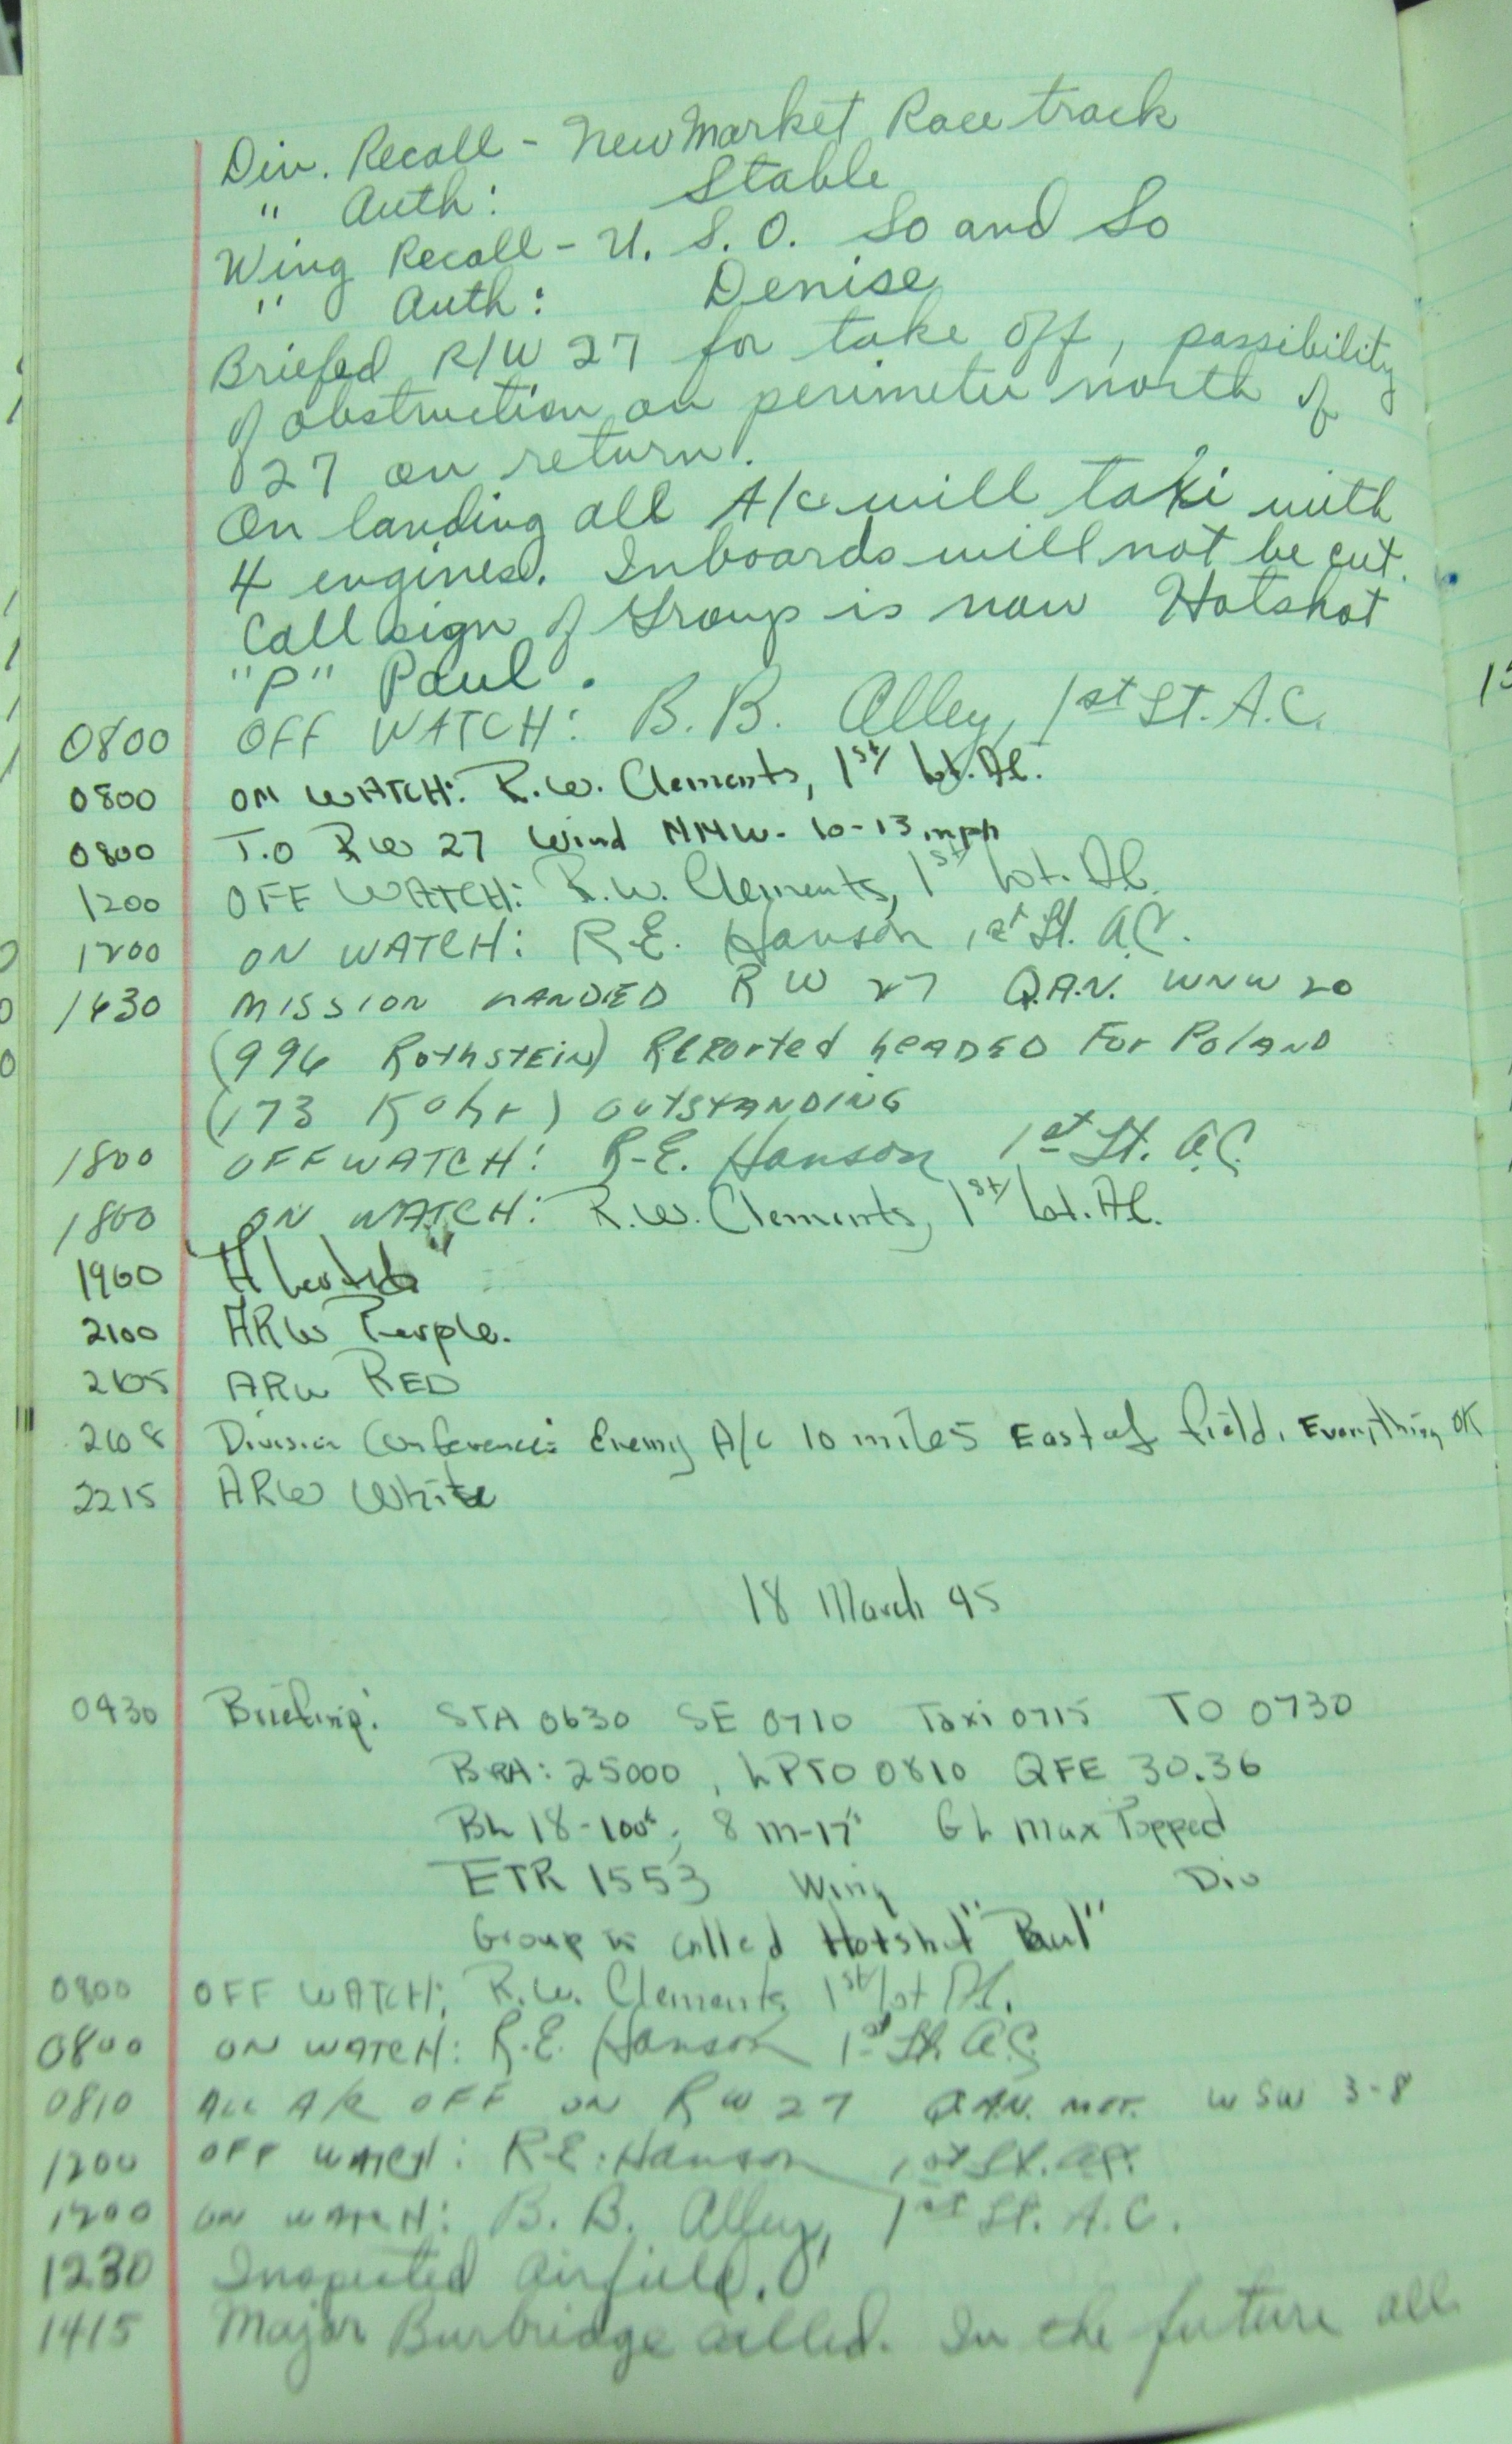 Div. Recall - New Market Race track
" Auth: Stable
Wing Recall - U. S. O. So and So
" Auth: Denise
Briefed R/W 27 for take off, possibility
of obstruction on perimeter north of
27 on return.
On landing all A/c will taxi with
4 engines. Inboards will not be cut.
Call sign of Group is now Hotshot
"P" Paul.
0800 OFF WATCH: B. B. Alley, 1st Lt. A.C.
0800 ON WATCH: R.W. Clements, 1st Lt. AC.
0800 T.O RW 27 Wind NNW- 10-13 mph
1200 OFF WATCH: R.W. Clements, 1st Lt. AC.
1200 ON WATCH: R.E. Hanson 1st Lt. A.C.
1630 MISSION LANDED RW 27 Q.A.N. WNW 20
(996 ROTHSTEIN) REPORTED HEADED FOR POLAND
(173 Kohr) OUTSTANDING
1800 OFF WATCH: R.E. Hanson 1st Lt. A.C.
1800 ON WATCH: R.W. Clements, 1st Lt. AC.
1900
2100 ARW Purple.
2105 ARW RED
2108 Division Conference: Enemy A/c 10 miles East of field. Everything OK
2215 ARW White
18 March 45
0430 Briefing: STA 0630 SE 0710 Taxi 0715 TO 0730
BRA: 25000, LPTO 0810 QFE 30.36
BL 18-100#; 8 M-17s GL Max Topped
ETR 1553 Wing Div
Group is called Hotshot "Paul"
0800 OFF WATCH: R.W. Clements 1st Lt AC.
0800 ON WATCH: R.E. Hanson 1st Lt. A.C.
0810 ALL A/C OFF ON RW 27 Q.A.N. MET. WSW 3-8
1200 OFF WATCH: R.E. Hanson 1st Lt. A.C.
1200 ON WATCH: B. B. Alley, 1st Lt. A.C.
1230 Inspected airfield.
1415 Major Burbridge called. In the future all